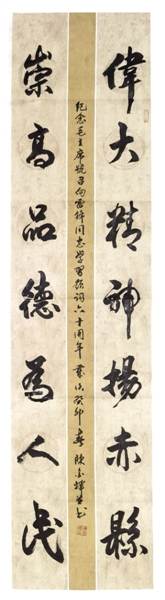 偉大精神揚赤縣
崇高品德為人民
紀念毛主席號召向雷鋒同志學習題詞六十周年 歲次癸卯春